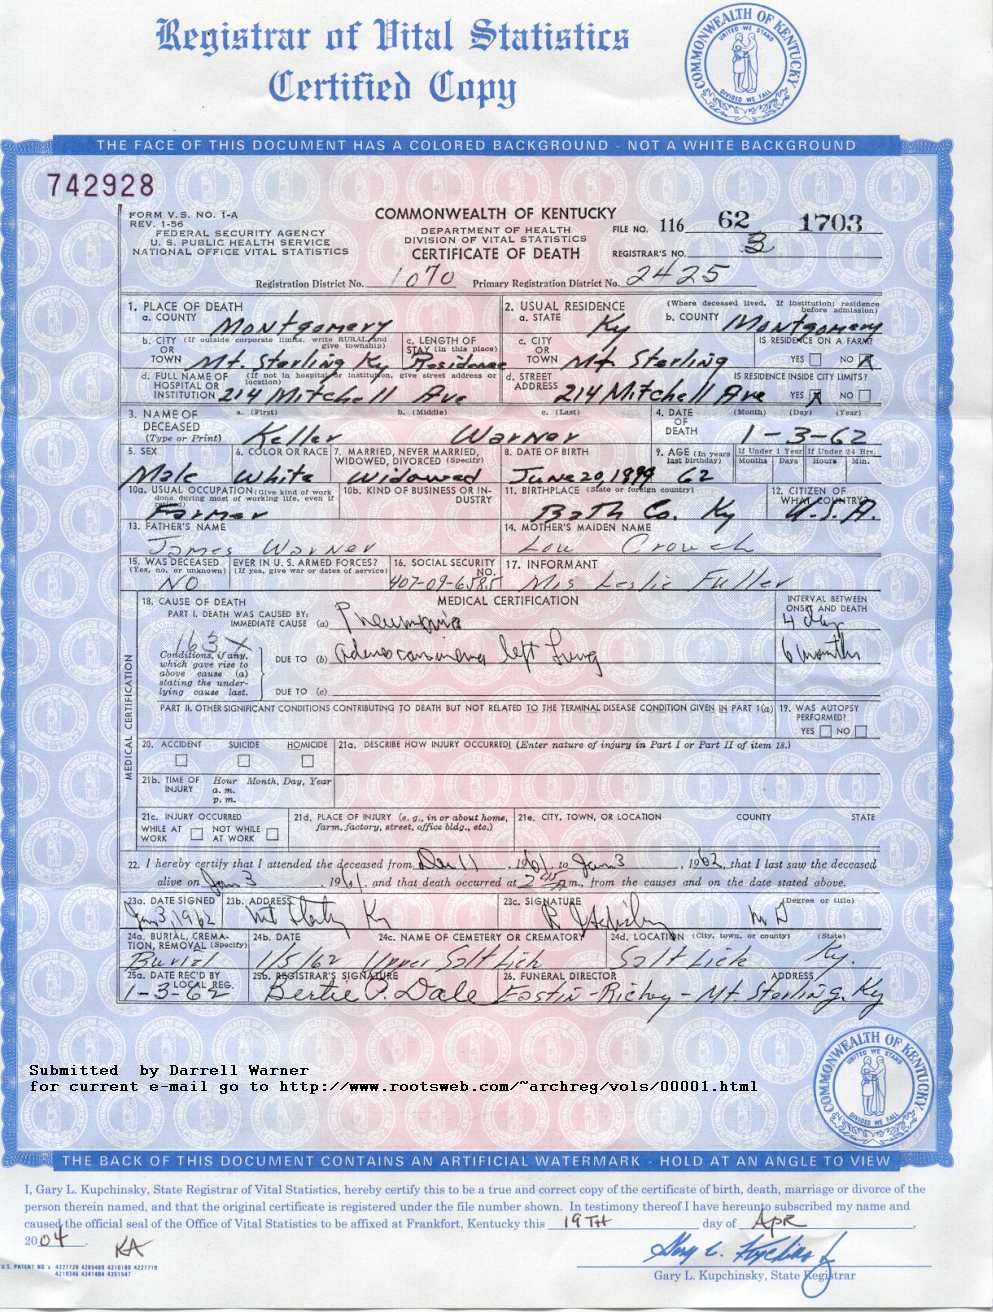 Registrar of Vital Statistics
Certified Copy
COMMONWEALTH OF KENTUCKY
UNITED WE STAND
DIVIDED WE FALL
THE FACE OF THIS DOCUMENT HAS A COLORED BACKGROUND - NOT A WHITE BACKGROUND
742928
FORM V.S. NO. 1-A
REV. 1-56
FEDERAL SECURITY AGENCY
U. S. PUBLIC HEALTH SERVICE
NATIONAL OFFICE VITAL STATISTICS
COMMONWEALTH OF KENTUCKY
DEPARTMENT OF HEALTH
DIVISION OF VITAL STATISTICS
CERTIFICATE OF DEATH
FILE NO. 116 62 1703
REGISTRAR'S NO. 3
Registration District No. 1070 Primary Registration District No. 2425
1. PLACE OF DEATH
a. COUNTY Montgomery
2. USUAL RESIDENCE (Where deceased lived. If institution: residence before admission)
a. STATE Ky b. COUNTY Montgomery
b. CITY (If outside corporate limits, write RURAL and give township)
OR
TOWN Mt. Sterling Ky
c. LENGTH OF STAY (in this place) Residence
c. CITY
OR
TOWN Mt Sterling
IS RESIDENCE ON A FARM?
YES NO X
d. FULL NAME OF (If not in hospital or institution, give street address or location)
HOSPITAL OR
INSTITUTION 214 Mitchell Ave
d. STREET
ADDRESS 214 Mitchell Ave
IS RESIDENCE INSIDE CITY LIMITS?
YES X NO
3. NAME OF DECEASED (Type or Print)
a. (First) b. (Middle) c. (Last)
Keller Warner
4. DATE OF DEATH (Month) (Day) (Year)
1-3-62
5. SEX Male
6. COLOR OR RACE White
7. MARRIED, NEVER MARRIED, WIDOWED, DIVORCED (Specify) Widowed
8. DATE OF BIRTH June 20, 1899
9. AGE (In years last birthday) 62
If Under 1 Year Months Days
If Under 24 Hrs. Hours Min.
10a. USUAL OCCUPATION (Give kind of work done during most of working life, even if
Farmer
10b. KIND OF BUSINESS OR INDUSTRY
11. BIRTHPLACE (State or foreign country) Bath Co. Ky
12. CITIZEN OF WHAT COUNTRY? U.S.A.
13. FATHER'S NAME
James Warner
14. MOTHER'S MAIDEN NAME
Lou Crouch
15. WAS DECEASED EVER IN U. S. ARMED FORCES?
(Yes, no, or unknown) (If yes, give war or dates of service)
NO
16. SOCIAL SECURITY NO. 407-09-6585
17. INFORMANT
Mrs Leslie Fuller
MEDICAL CERTIFICATION
18. CAUSE OF DEATH
MEDICAL CERTIFICATION
INTERVAL BETWEEN ONSET AND DEATH
PART I. DEATH WAS CAUSED BY:
IMMEDIATE CAUSE (a) Pneumonia 4 days
163 X
Conditions, if any, which gave rise to above cause (a) stating the underlying cause last.
DUE TO (b) adenocarcinoma left Lung 6 months
DUE TO (c)
PART II. OTHER SIGNIFICANT CONDITIONS CONTRIBUTING TO DEATH BUT NOT RELATED TO THE TERMINAL DISEASE CONDITION GIVEN IN PART 1(a)
19. WAS AUTOPSY PERFORMED?
YES NO
20. ACCIDENT SUICIDE HOMICIDE
21a. DESCRIBE HOW INJURY OCCURRED! (Enter nature of injury in Part I or Part II of item 18.)
21b. TIME OF INJURY Hour Month, Day, Year
a. m.
p. m.
21c. INJURY OCCURRED
WHILE AT WORK NOT WHILE AT WORK
21d. PLACE OF INJURY (e. g., in or about home, farm, factory, street, office bldg., etc.)
21e. CITY, TOWN, OR LOCATION COUNTY STATE
22. I hereby certify that I attended the deceased from Dec 11, 1961, to Jan 3, 1962, that I last saw the deceased
alive on Jan 3, 1961, and that death occurred at 2 45 A m., from the causes and on the date stated above.
23a. DATE SIGNED Jan 3, 1962
23b. ADDRESS Mt Sterling Ky
23c. SIGNATURE (Degree or title)
M D
24a. BURIAL, CREMATION, REMOVAL (Specify) Burial
24b. DATE 1/5/62
24c. NAME OF CEMETERY OR CREMATORY Upper Salt Lick
24d. LOCATION (City, town, or county) (State) Salt Lick Ky.
25a. DATE REC'D BY LOCAL REG. 1-3-62
25b. REGISTRAR'S SIGNATURE Bertie P. Dale
26. FUNERAL DIRECTOR ADDRESS
Eastin-Richey - Mt Sterling, Ky
COMMONWEALTH OF KENTUCKY
UNITED WE STAND
DIVIDED WE FALL
Submitted by Darrell Warner
for current e-mail go to http://www.rootsweb.com/~archreg/vols/00001.html
THE BACK OF THIS DOCUMENT CONTAINS AN ARTIFICIAL WATERMARK - HOLD AT AN ANGLE TO VIEW
I, Gary L. Kupchinsky, State Registrar of Vital Statistics, hereby certify this to be a true and correct copy of the certificate of birth, death, marriage or divorce of the
person therein named, and that the original certificate is registered under the file number shown. In testimony thereof I have hereunto subscribed my name and
caused the official seal of the Office of Vital Statistics to be affixed at Frankfort, Kentucky this 19TH day of APR,
2004.
KA
Gary L. Kupchinsky, State Registrar